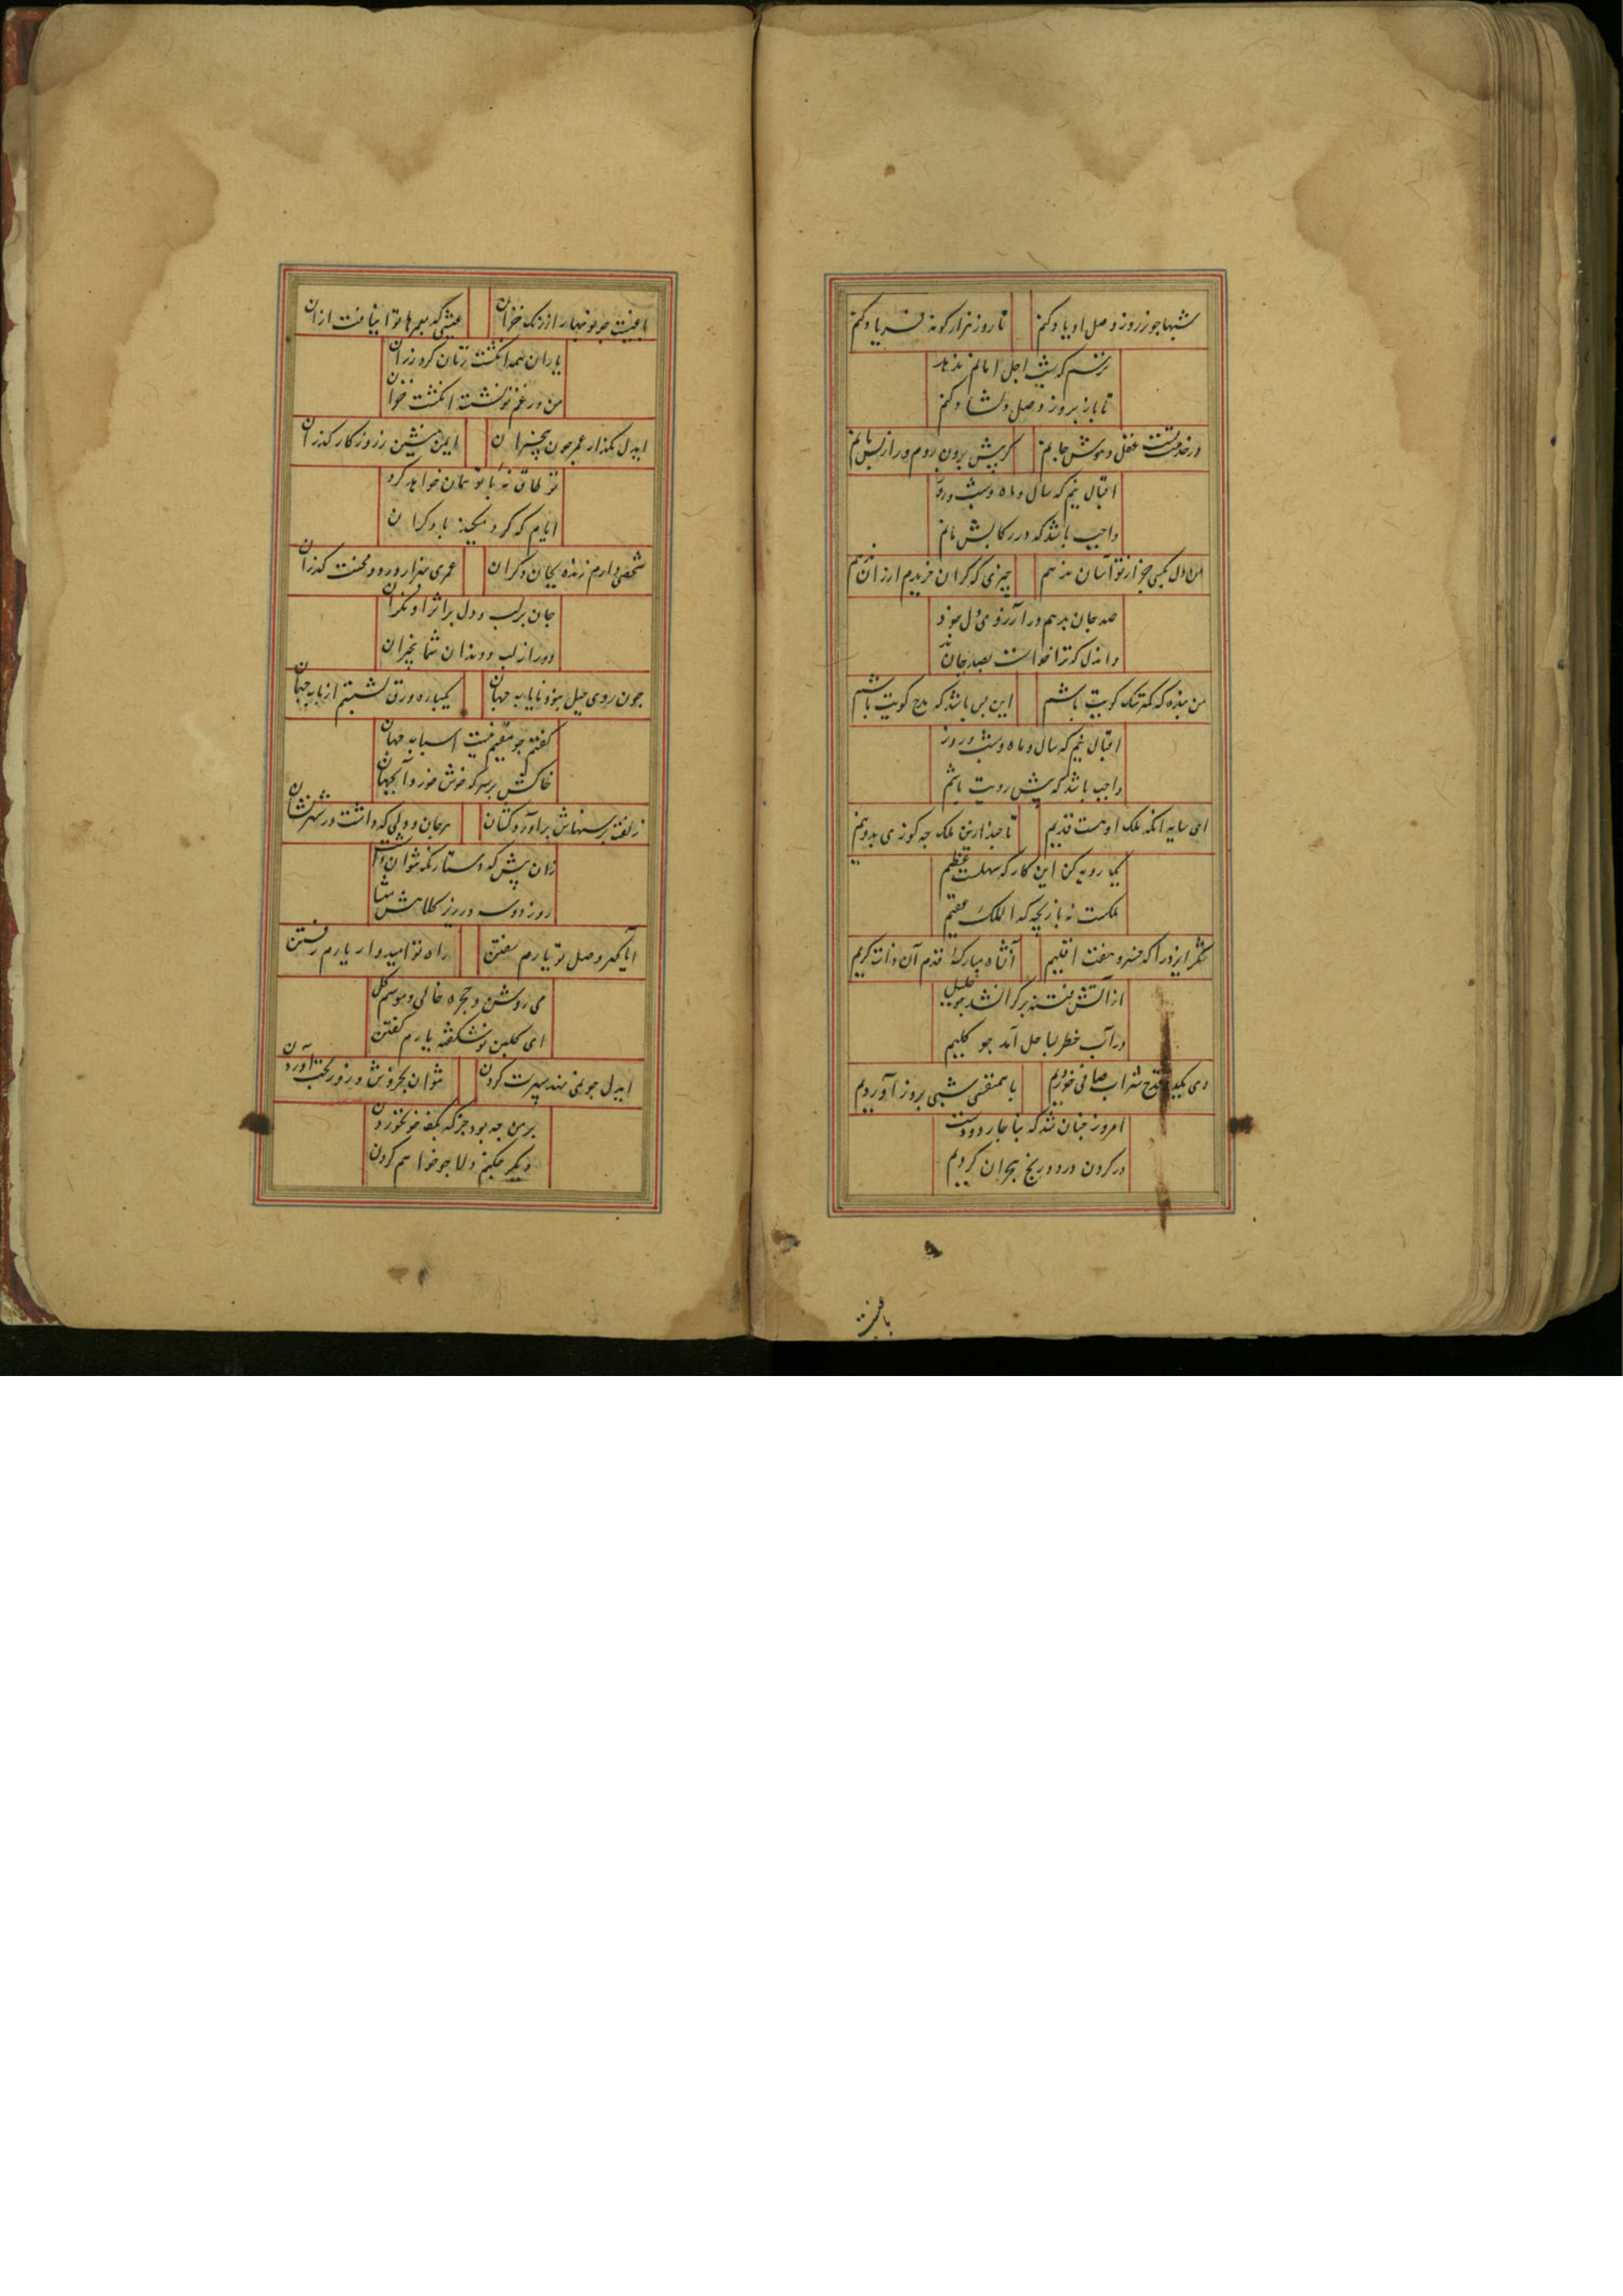 شبها جو ز روز وصل او یاد کنم تا روز هزار کونه فریاد کنم
ترسم که شب اجل امانم ندهد
تا باز بروز وصل دلشاد کنم
در خدمتت عقل و هوش جانم کر پیش برون روم ور از پس مانم
اقبال نیم که سال و ماه و شب و روز
واجب باشد که در رکابش مانم
این دل بکسی جز از تو آسان ندهم چیزی که کران خریدم ارزان ندهم
صد جان بدهم در آرزوی دل خود
و اندل که ترا خواست بصد جان ندهم
من بنده که کمتر سک کویت باشم این بس باشد که مدح کویت باشم
اقبال نیم که سال و ماه و شب و روز
واجب باشد که پیش رویت باشم
ای سایه انکه ملک او هست قدیم تا چند ازین ملک جه کوزی بدو نیم
یکباره یه کن این کار که سهلست عظیم
ملکست نه بازیچه که الملک عقیم
شکر ایزد را که خسرو هفت اقلیم آنشاه مبارک قدم آن ذات کریم
از آتش فتنه بر کرانشد جو خلیل
در آب خطر بساحل آمد جو کلیم
دی یکدو قدح شراب صافی خوردیم با همنفسی شبی بروز آوردیم
امروز جنان شد که بناچار ز دوست
در کردن درد و رنج هجران کردیم
باغیست
باغیست جو نوبهار از رنک خزان عیشی که بعمرها توان یافت ازان
یاران همه انکشت زنان کرد رزان
من در غم تو نشسته انکشت کزان
ایدل مکذار عمر جون بیخبران ایمن منشین ز روزکار کذران
تو طاق نه با تو همان خواهد کرد
ایام که کرد میکند با دکران
شخصی دارم زنده بجان دکران عمری بهزار درد و محنت کذران
جان بر لب و دل بر اثر او نکران
دور از لب و دندان شما بیخبران
جون روی جیل بنود نایاب جهان یکباره ورق بشستم از باب جهان
کفتم جو مقیم نیست اسباب جهان
خاکش بر سر که خوش خورد آب جهان
زلفت بر سنهاش بر آورد کشان هر جان و دلی که داشت در شهر نشان
زان پیش که دستار نکه نتوان داشت
روزدوسه در زیر کلاهش بنشان
ایا کهر وصل تو یارم سفتن راه تو امیدوار یارم رفتن
می روشن و حجره خالی و موسم کل
ای کلبن نوشکفته یارم کفتن
ایدل جو نمی نهد سپهرت کردن نتوان بخروش و زور بختت آوردن
بر من جه بود جز که بکف خون خوردن
دیکر جکنم دلا جو خواهم کردن